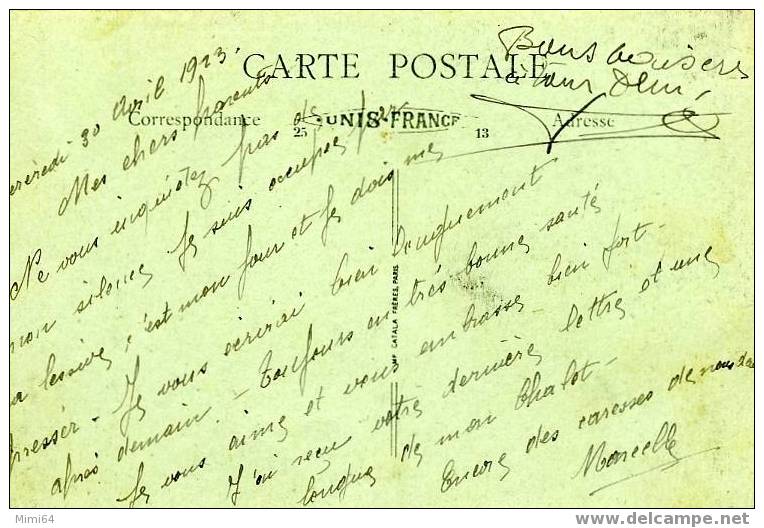 CARTE POSTALE
Bons baisers
à tour Deni,
Correspondance
25 UNIS-FRANCE 13
Adresse
IMP. CATALA FRÈRES, PARIS
30 Avril 1923,
Mes chers parents
Ne vous inquiétez pas de
mon silence je suis occupée par
la lessive, c'est mon jour et je dois me
presser - Je vous écrirai bien longuement
après demain - toujours en très bonne santé
Je vous aime et vous embrasse bien fort -
J'ai reçu votre dernière lettre et une
longue de mon Chalot -
Encore des caresses de nous deux
Marcelle
Mimi64
www.delcampe.net